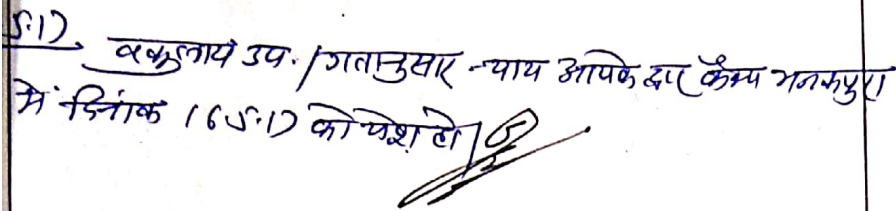 5.17
वकुलाय उप. / गतानुसार न्याय आपके द्वार कैम्प मनकपुरा
में दिनांक 16.5.17 को पेश हो |